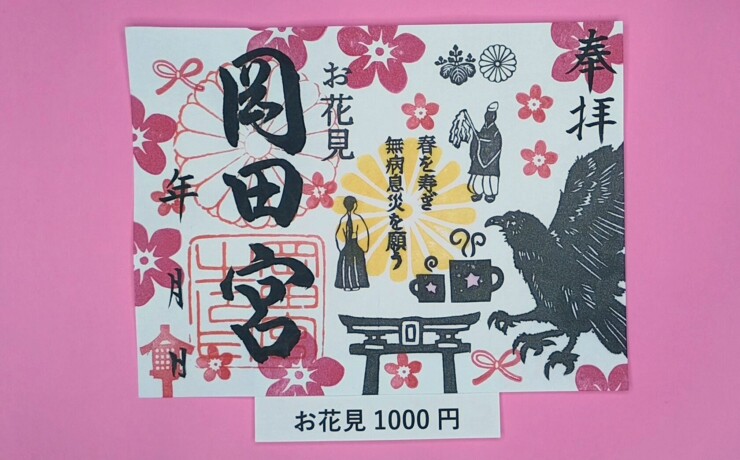 奉拝
春を寿ぎ
無病息災を願う
お花見
岡田宮
年
月
日
お花見 1000 円